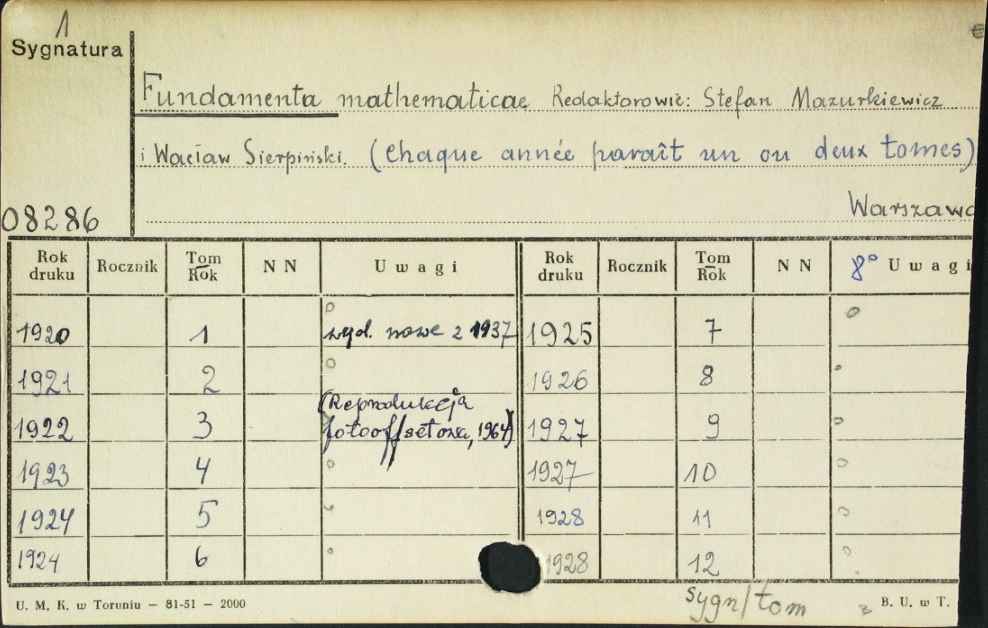 1
Sygnatura
Fundamenta mathematicae Redaktorowie: Stefan Mazurkiewicz
i Wacław Sierpiński. (Chaque année paraît un ou deux tomes)
08286
Warszawa
Rok druku Rocznik Tom Rok N N Uwagi Rok druku Rocznik Tom Rok N N 8° Uwagi
1920 1 wyd. nowe z 1937 1925 7
1921 2 1926 8
1922 3 (Reprodukcja fotooffsetowa, 1964) 1927 9
1923 4 1927 10
1924 5 1928 11
1924 6 1928 12
U. M. K. w Toruniu – 81-51 – 2000
sygn/tom
B. U. w T.